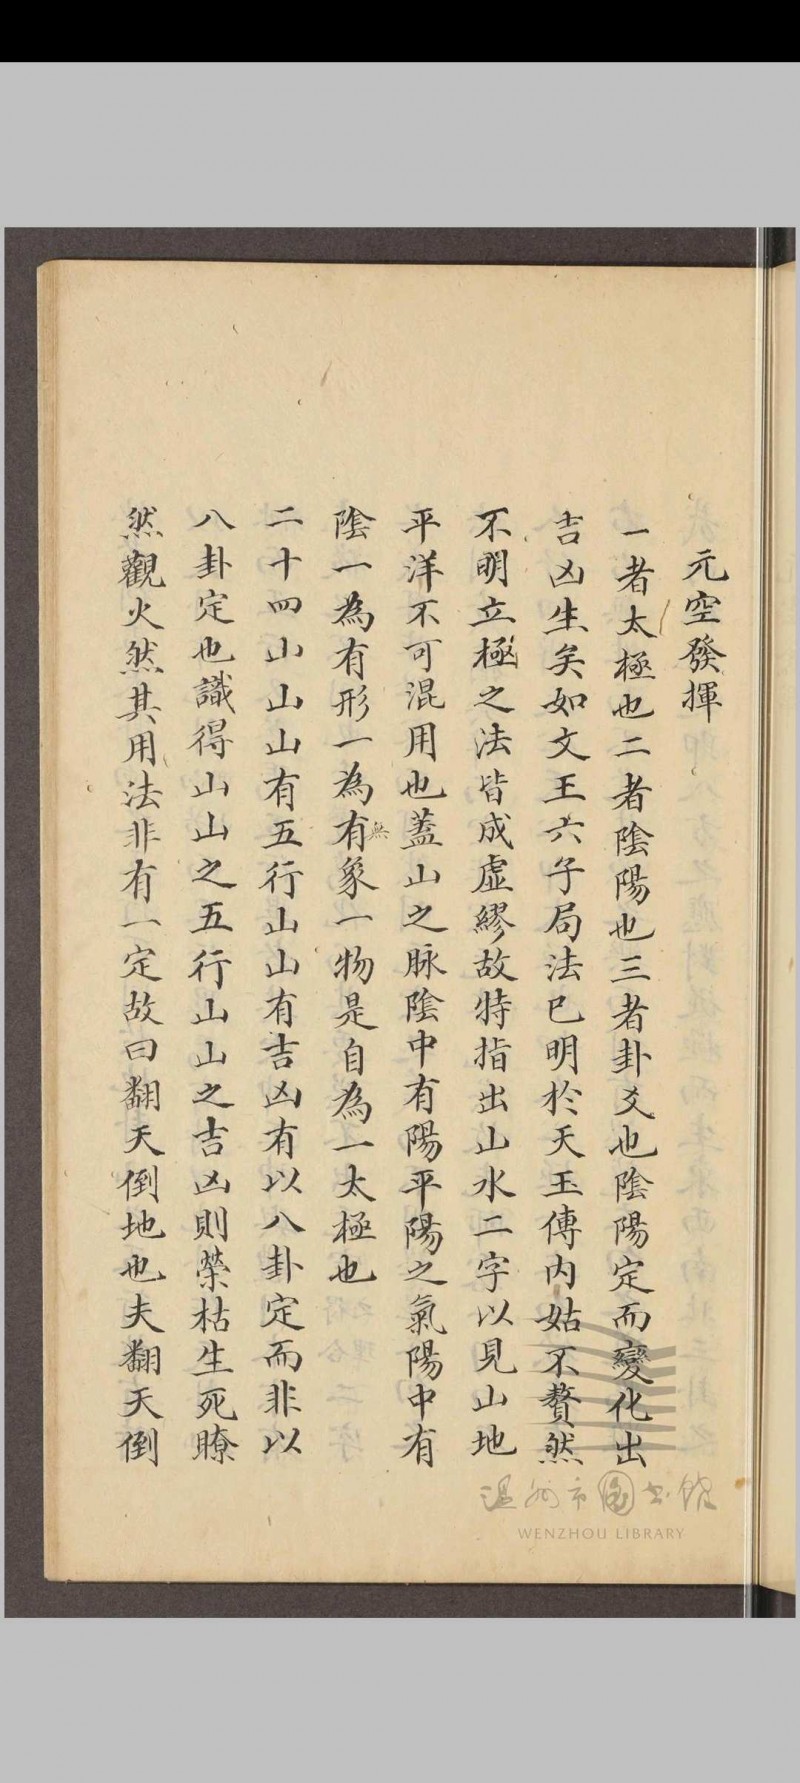 元空發揮
一者太極也二者陰陽也三者卦爻也陰陽定而變化出
吉凶生矣如文王六子局法已明於天玉傳內姑不贅然
不明立極之法皆成虛繆故特指出山水二字以見山地
平洋不可混用也蓋山之脉陰中有陽平陽之氣陽中有
陰一為有形一為有無象一物是自為一太極也
二十四山山山有五行山山有吉凶有以八卦定而非以
八卦定也識得山山之五行山山之吉凶則榮枯生死瞭
然觀火然其用法非有一定故曰翻天倒地也夫翻天倒
温州市圖書館
WENZHOU LIBRARY